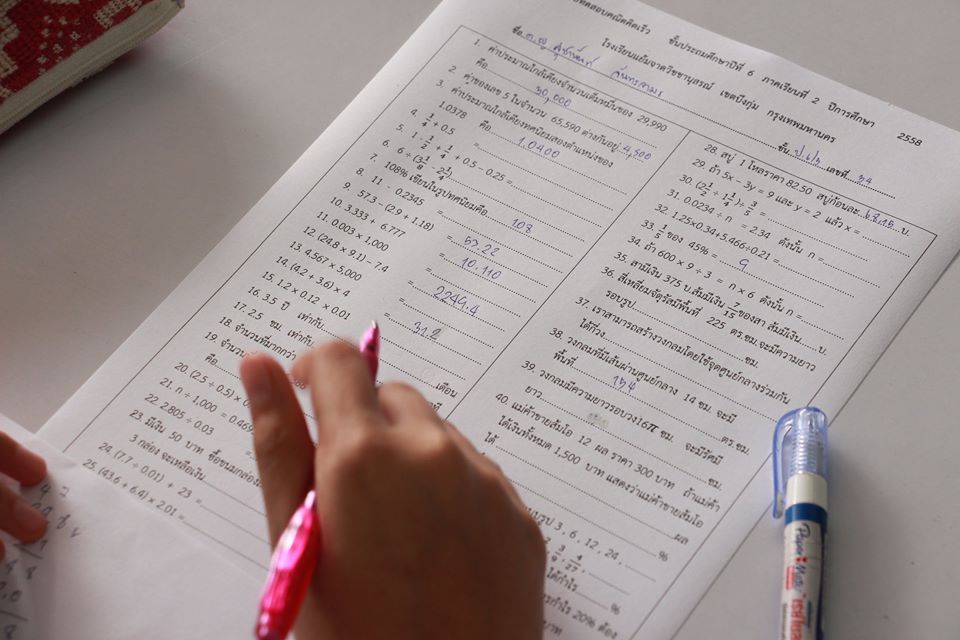 ทดสอบคณิตคิดเร็ว ชั้นประถมศึกษาปีที่ 6 ภาคเรียนที่ 2 ปีการศึกษา 2558
โรงเรียนแย้มจาดวิชชานุสรณ์ เขตบึงกุ่ม กรุงเทพมหานคร
ชื่อ ชั้น ป.6/3 เลขที่ 34
1. ค่าประมาณใกล้เคียงจำนวนเต็มหมื่นของ 29,990
คือ 30,000
2. ค่าของเลข 5 ในจำนวน 65,590 ต่างกันอยู่ 4,500
3. ค่าประมาณใกล้เคียงทศนิยมสองตำแหน่งของ
1.0378 คือ 1.0400
4. 1/4 + 0.5 =
5. 1 - 1/2 + 1/4 + 0.5 - 0.25 =
6. 6 ÷ (3 1/8 - 2 1/4)
7. 108% เขียนในรูปทศนิยมคือ 108
8. 11 - 0.2345 =
9. 57.3 - (2.9 + 1.18) = 53.22
10. 3.333 + 6.777 = 10.110
11. 0.003 x 1,000 =
12. (24.8 x 9.1) - 7.4 = 2244.4
13. 4.567 x 5,000 =
14. (4.2 + 3.6) x 4 = 31.2
15. 1.2 x 0.12 x 0.01
16. 3.5 ปี เท่ากับ เดือน
17. 2.5 ชม. เท่ากับ
18. จำนวนที่มากกว่า
19. จำนวน
คือ
20. (2.5 ÷ 0.5) x 0
21. n ÷ 1,000 = 0.469
22. 2.805 ÷ 0.03
23. มีเงิน 50 บาท ซื้อขนมกล่องละ
3 กล่อง จะเหลือเงิน
24. (7.7 ÷ 0.01) + 23 =
25. (43.6 + 6.4) x 2.01 =
28. สบู่ 1 โหลราคา 82.50 สบู่ก้อนละ บ.
29. ถ้า 5x - 3y = 9 และ y = 2 แล้ว x =
30. (2 1/2 ÷ 1 1/4) ÷ 3/5 =
31. 0.0234 ÷ n = 2.34 ดังนั้น n =
32. 1.25x0.34+5.466÷0.21 =
33. 1/5 ของ 45% = 9
34. ถ้า 600 x 9 ÷ 3 = n x 6 ดังนั้น n =
35. สามีเงิน 375 บ.ส้มมีเงิน 7/15 ของสา ส้มมีเงิน บ.
36. สี่เหลี่ยมจัตุรัสมีพื้นที่ 225 ตร.ซม.จะมีความยาว
รอบรูป ซม.
37. เราสามารถสร้างวงกลมโดยใช้จุดศูนย์กลางร่วมกัน
ได้กี่วง
38. วงกลมที่มีเส้นผ่านศูนย์กลาง 14 ซม. จะมี
พื้นที่ 154 ตร.ซม.
39. วงกลมมีความยาวรอบวง16π ซม. จะมีรัศมี
ยาว ซม.
40. แม่ค้าขายส้มโอ 12 ผล ราคา 300 บาท ถ้าแม่ค้า
ได้เงินทั้งหมด 1,500 บาท แสดงว่าแม่ค้าขายส้มโอ
ได้ ผล
รูป 3 , 6 , 12 , 24 , %
3/9 , 4/27 ,
ได้กำไร %
กำไร 20% ต้อง
บาท
Paper Mate